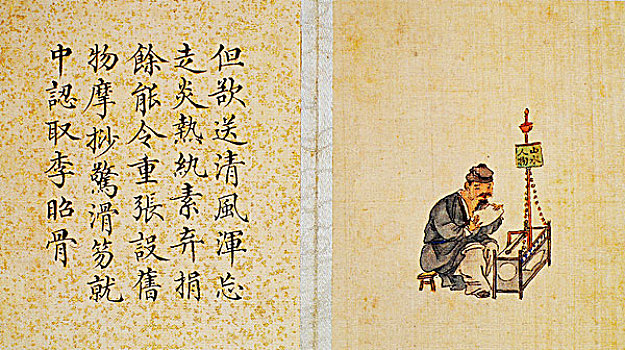 但欲送清風渾忘
走炎熱紈素弃捐
餘能令重張設舊
物摩抄驚滑笏就
中認取李昭骨
山水
人物